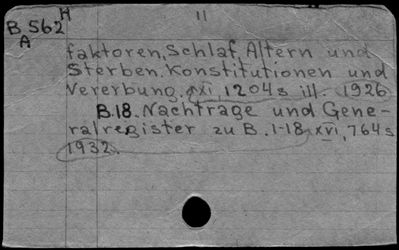 H
11
B 562
A
faktoren, Schlaf, Altern und
Sterben. Konstitutionen und
Vererbung. xi, 1204 s ill. 1926
B.18. Nachträge und Gene-
ralregister zu B. 1-18. xvi, 764 s
1932.